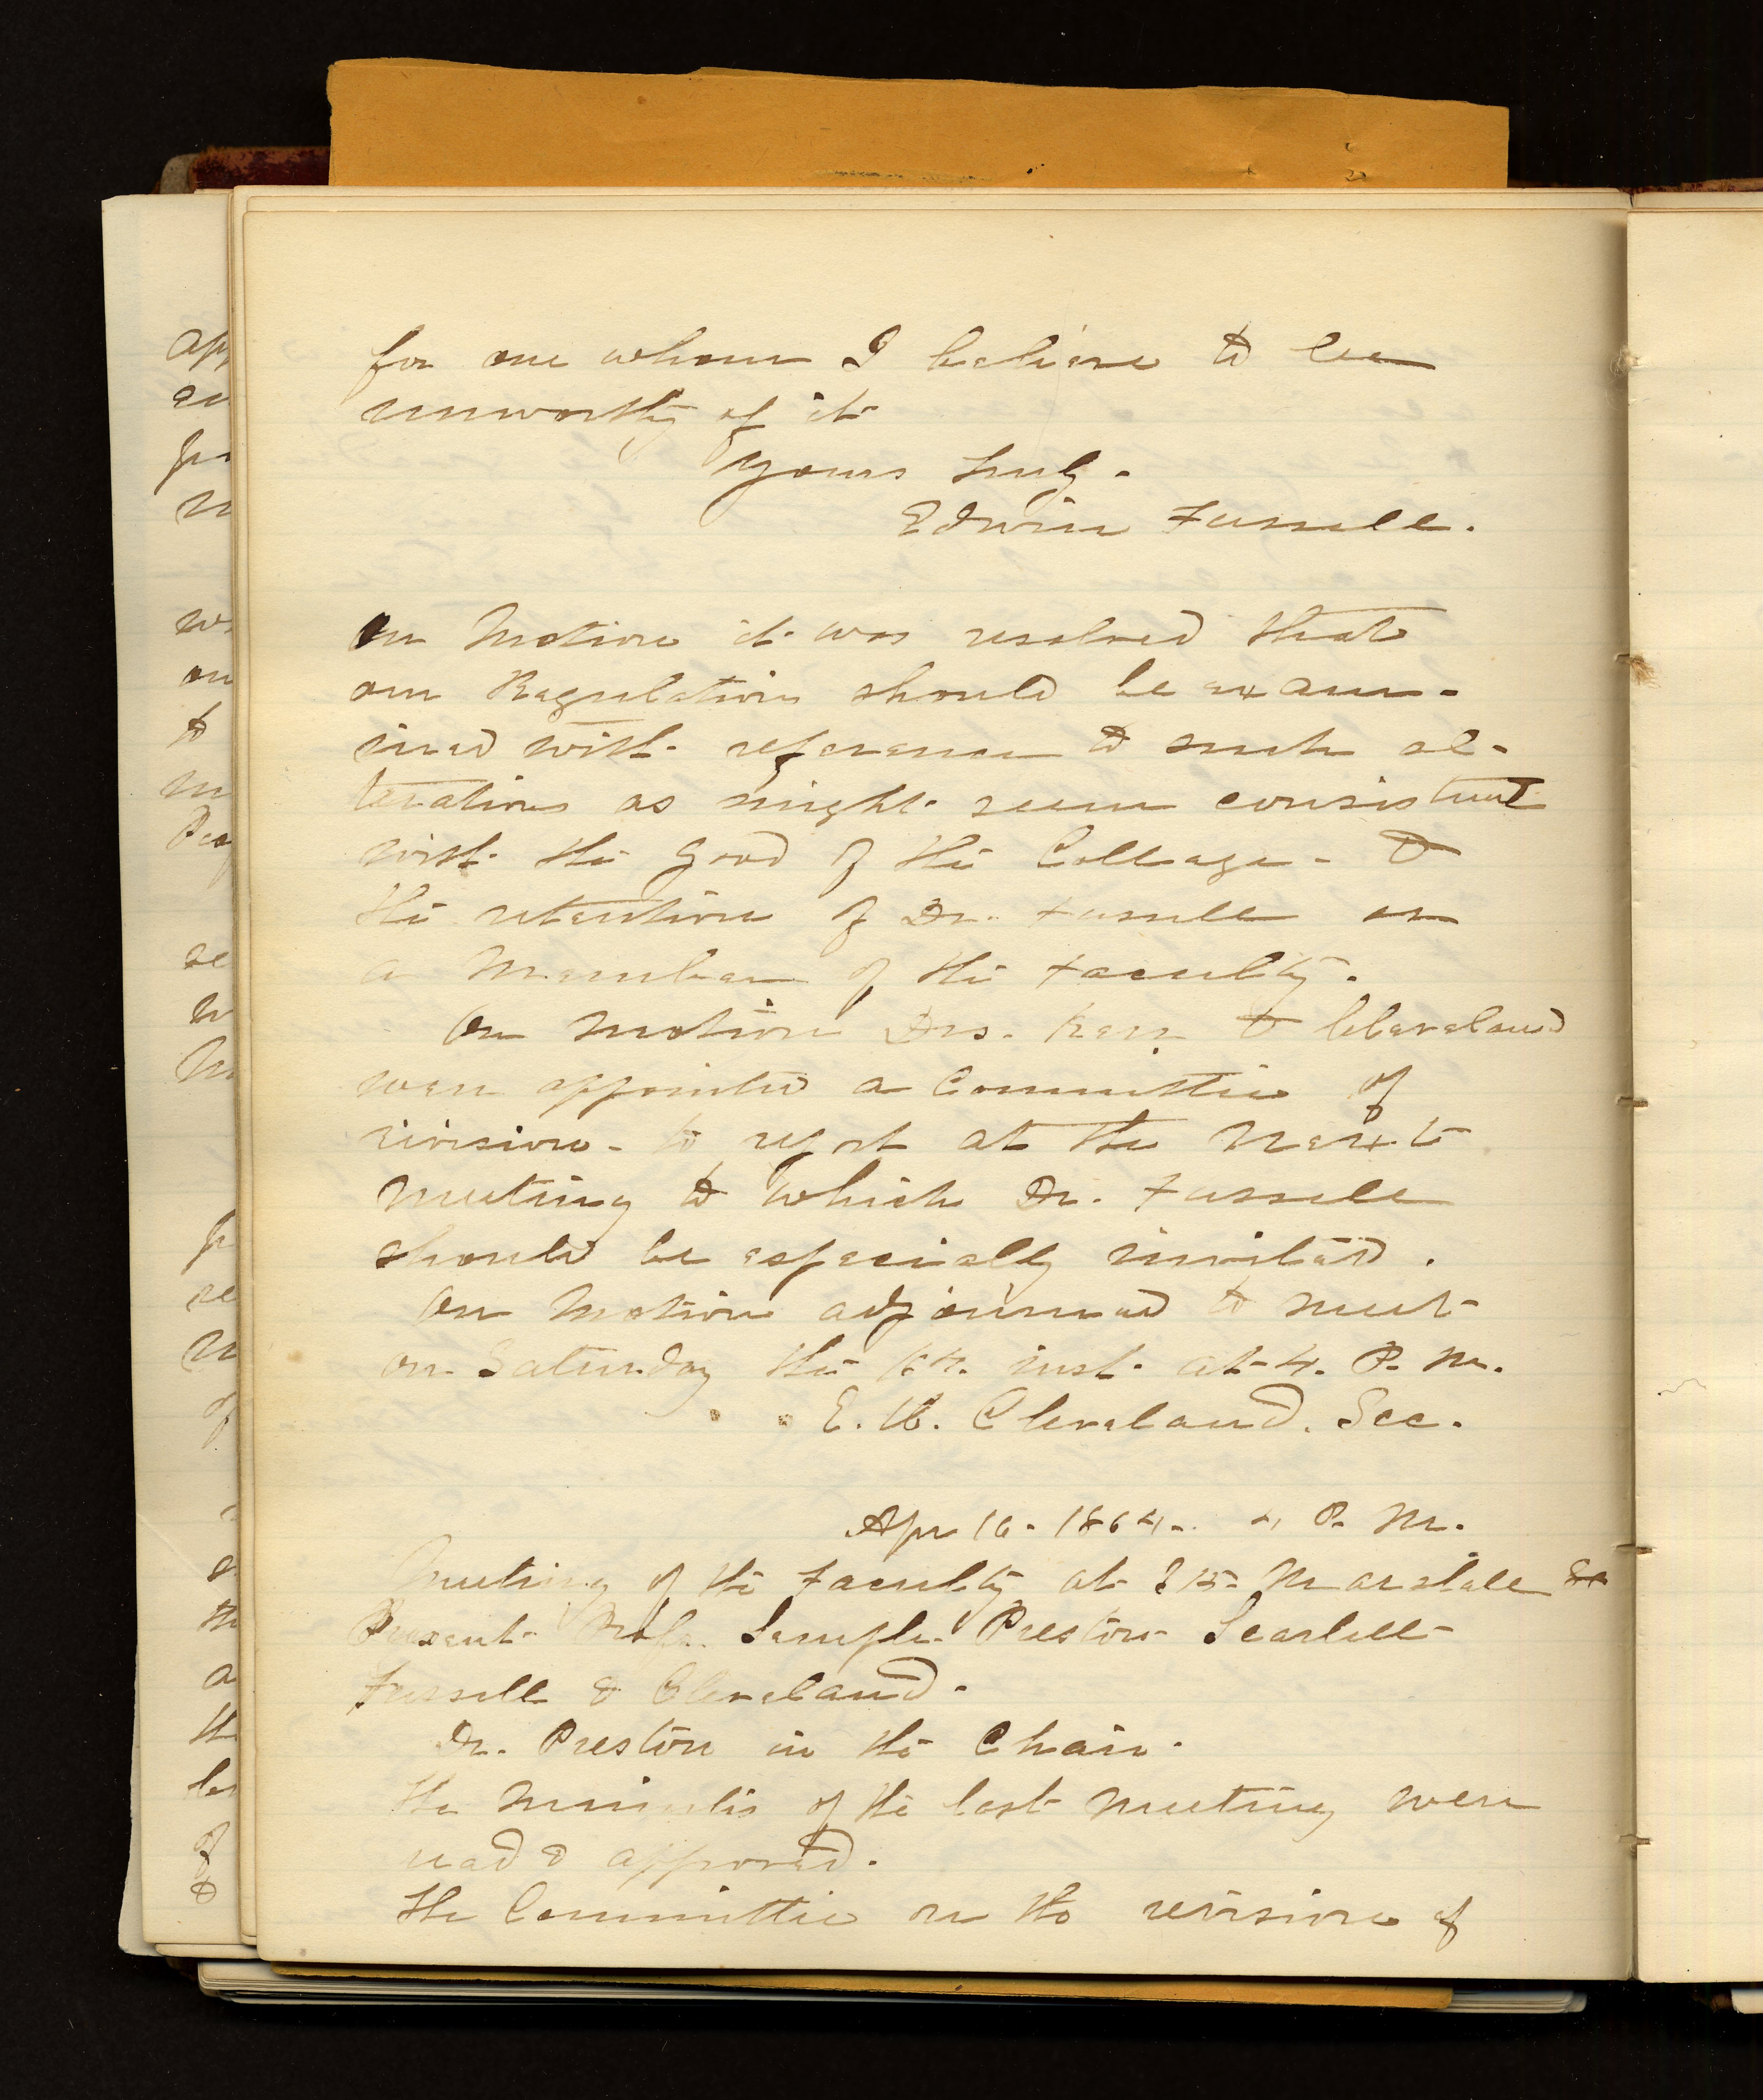 for one whom I believe to be
unworthy of it
Yours truly.
Edwin Fussell.
On Motion it was resolved that
our Regulations should be exam-
ined with reference to such al-
terations as might seem consistent
with the good of the College - &
the retention of Dr. Fussell as
a Member of the Faculty.
On motion Drs. & Cleveland
were appointed a Committee of
revision - to report at the Next
Meeting to which Dr. Fussell
should be especially invited.
On Motion adjourned to meet
on Saturday the inst. at 4. P. M.
E. H. Cleveland. Sec.
Apr 16 - 1864 - 4 P. M.
Meeting of the Faculty at Marshall St
Present - Profs. Sample - Preston - Scarlett -
Fussell & Cleveland.
Dr. Preston in the Chair.
The Minutes of the last Meeting were
read & approved.
The Committee on the revision of